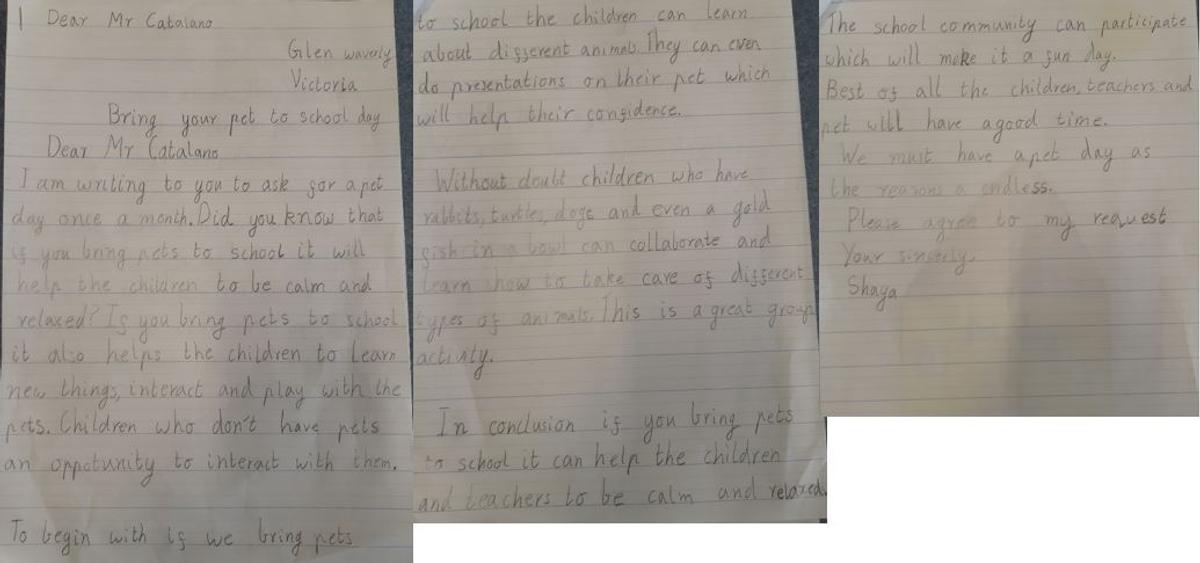 Dear Mr Catalano
Glen waverly
Victoria
Bring your pet to school day
Dear Mr Catalano
I am writing to you to ask for a pet
day once a month. Did you know that
if you bring pets to school it will
help the children to be calm and
relaxed? If you bring pets to school
it also helps the children to learn
new things, interact and play with the
pets. Children who don't have pets
an oppotunity to interact with them.
To begin with if we bring pets
to school the children can learn
about different animals. They can even
do presentations on their pet which
will help their confidence.
Without doubt children who have
rabbits, turtles, dogs and even a gold
fish in a bowl can collaborate and
learn how to take care of different
types of animals. This is a great group
activity.
In conclusion if you bring pets
to school it can help the children
and teachers to be calm and relaxed.
The school community can participate
which will make it a fun day.
Best of all the children, teachers and
pet will have a good time.
We must have a pet day as
the reasons a endless.
Please agree to my request
Your sincerly,
Shaya